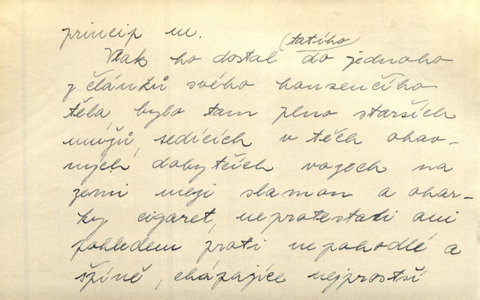 princip m.
Vlak ho dostal (tatího) do jednoho
z článků svého housenčího
těla, bylo tam plno starších
mužů, sedících v těch ohav-
ných, dobytčích vozech na
zemi mezi slamou a ohar-
ky cigaret, neprotestati ani
pohledem proti nepohodlé a
špíně, chápajíce nejprostší